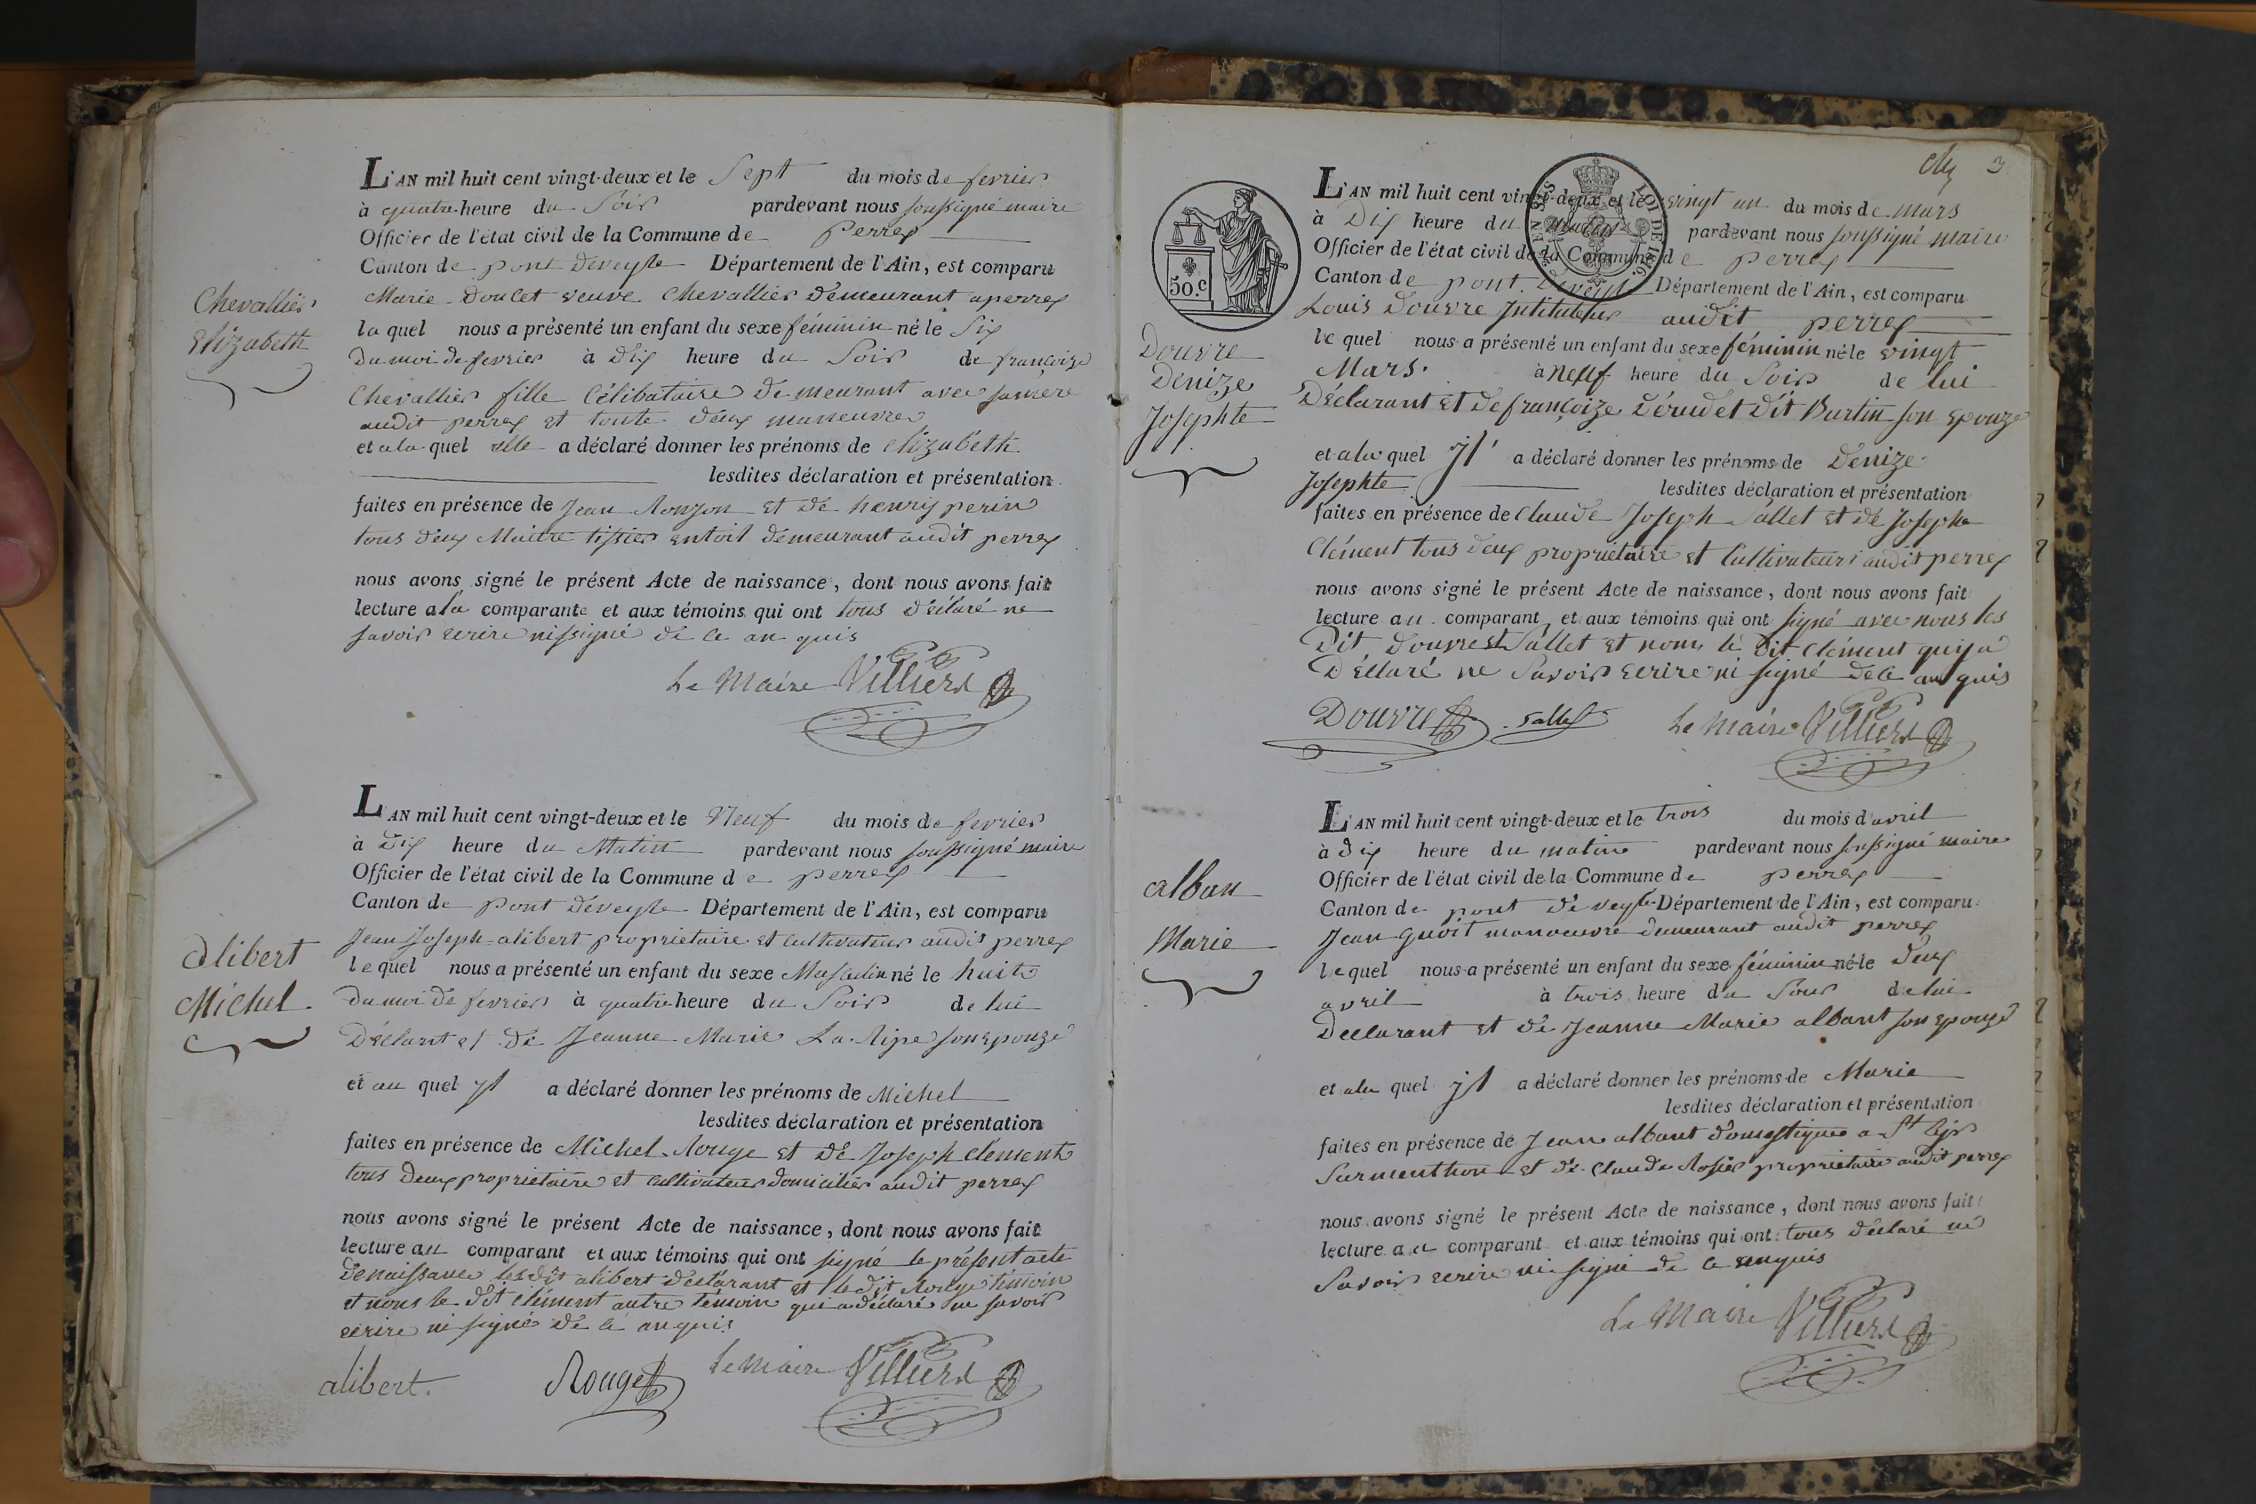 L'AN mil huit cent vingt-deux et le Sept du mois de fevrier
à quatre heure du Soir pardevant nous soussigné maire
Officier de l'état civil de la Commune de Perrex
Canton de pont deveyle Département de l'Ain, est comparu
Marie Doucet veuve Chevallier demeurant a perrex
Chevallier
Elizabeth
la quel nous a présenté un enfant du sexe féminin né le Six
du moi de fevrier à dix heure du Soir de françoize
Chevallier fille Célibataire demeurant avec sa mere
audit perrex et toute deux maneuvre
et a la quel elle a déclaré donner les prénoms de Elizabeth
lesdites déclaration et présentation
faites en présence de Jean Ronjon et de henrij perin
tous deux Maitre tissier entoil demeurant audit perrex
nous avons signé le présent Acte de naissance, dont nous avons fait
lecture a la comparante et aux témoins qui ont tous déclaré ne
savoir ecrire ni signé de ce an quis
Le Maire Villierd
L'AN mil huit cent vingt-deux et le Neuf du mois de fevrier
à Dix heure du Matin pardevant nous soussigné maire
Officier de l'état civil de la Commune de perrex
Canton de pont deveyle Département de l'Ain, est comparu
Jean Joseph alibert proprietaire et Cultivateur audit perrex
alibert
Michel
le quel nous a présenté un enfant du sexe Masculin né le huit
du moi de fevrier à quatre heure du Soir de lui
Déclarant et de Jeanne Marie La Ripe son epouze
et au quel jl a déclaré donner les prénoms de Michel
lesdites déclaration et présentation
faites en présence de Michel Rouge et de Joseph clement
tous deux proprietaire et cultivateur domicilier audit perrex
nous avons signé le présent Acte de naissance, dont nous avons fait
lecture au comparant et aux témoins qui ont signé le présent acte
de naissance les dit alibert déclarant et le dit Rouge témoin
et nous le dit clément autre témoin qui a déclaré ne savoir
ecrire ni signé de ce an quis
Le Maire Villierd
alibert. Rouge
3
50.c
LOI DE 1816.
L'AN mil huit cent vingt-deux et le vingt un du mois de mars
à Dix heure du matin pardevant nous soussigné maire
Officier de l'état civil de la Commune de perrex
Canton de pont Deveyle Département de l'Ain, est comparu
Louis Douvre Jntituteur audit perrex
Douvre
Denize
Josephte
le quel nous a présenté un enfant du sexe féminin né le vingt
Mars. à Neuf heure du Soir de lui
Déclarant et de françoize Dérudet dit Burtin son epouze
et a la quel jl a déclaré donner les prénoms de Denize
Josephte lesdites déclaration et présentation
faites en présence de Claude Joseph Sallet et de Joseph
Clément tous deux proprietaire et Cultivateur audit perrex
nous avons signé le présent Acte de naissance, dont nous avons fait
lecture au comparant et aux témoins qui ont signé avec nous les
dit Douvre et Sallet et nom le dit clément qui ja
Déllaré ne Savoir ecrire ni signé de ce an quis
Douvre Sallet Le Maire Villierd
L'AN mil huit cent vingt-deux et le trois du mois d'avril
à dix heure du matin pardevant nous soussigné maire
Officier de l'état civil de la Commune de perrex
Canton de pont de veyle Département de l'Ain, est comparu
Jean Guoit manoeuvre demeurant audit perrex
alban
Marie
le quel nous a présenté un enfant du sexe féminin né le deux
avril à trois heure du Soir de lui
Declarant et de Jeanne Marie albant son epouze
et a la quel jl a déclaré donner les prénoms de Marie
lesdites déclaration et présentation
faites en présence de Jean albant domestique a St Cyr
Surmenthon et de Claude Rosier proprietaire audit perrex
nous avons signé le présent Acte de naissance, dont nous avons fait
lecture au comparant et aux témoins qui ont tous déclaré ne
Savoir ecrire ni signé de ce enquis
Le Maire Villierd